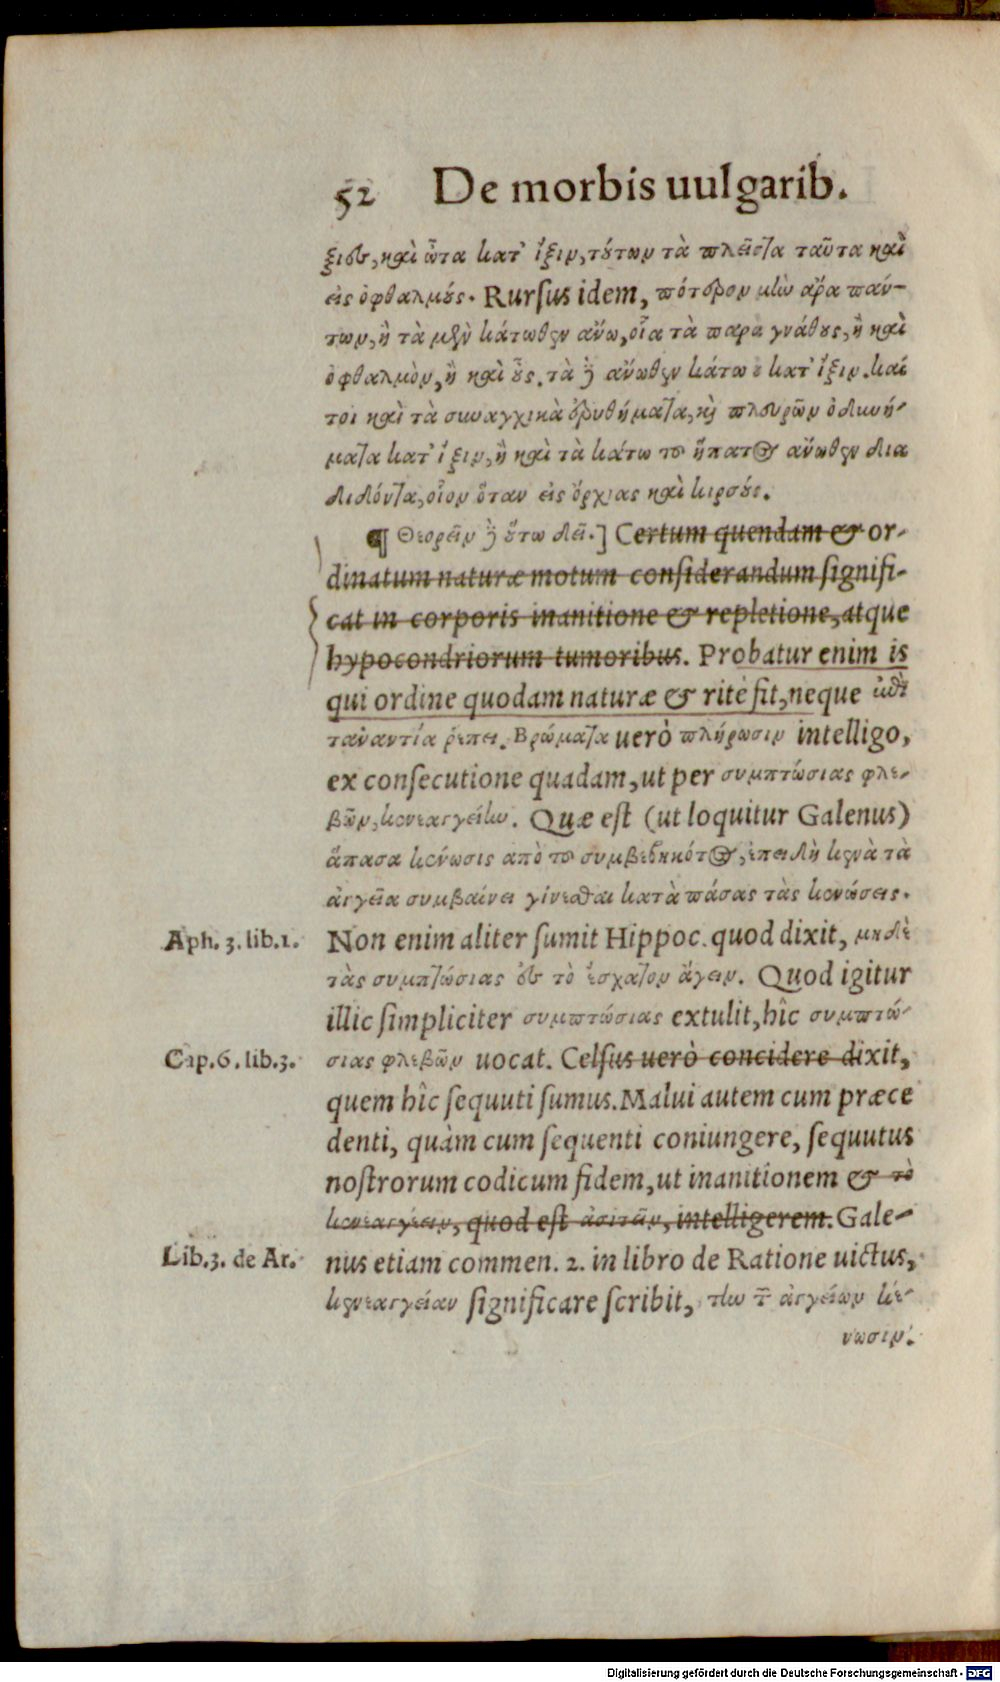 52 De morbis uulgarib.
ξιες, καὶ ὦτα κατ' ἴξιν, τύτων τὰ πλεῖστα ταῦτα καὶ
εἰς ὀφθαλμύς. Rurſus idem, πότερον μὴν ἄρα πάν-
των, ἢ τὰ μὲν κάτωθεν ἄνω, οἷα τὰ παρα γνάθυς, ἢ καὶ
ὀφθαλμὸν, ἢ καὶ ὖς. τὰ ἢ ἄνωθεν κάτω κατ' ἴξιν. καί
τοι καὶ τὰ συναγχικὰ ἐρυθήματα, κὶ πλευρῶν ὀδυνή-
ματα κατ' ἴξιν, ἢ καὶ τὰ κάτω τ ἥπατος ἄνωθεν δια
διδόντα, οἷον ὅταν εἰς ὄρχιας καὶ κιρσύς.
¶ Θεορεῖν ὕτω δεῖ.] Certum quendam & or-
dinatum naturæ motum conſiderandum ſignifi-
cat in corporis inanitione & repletione, atque
hypocondriorum tumoribus. Probatur enim is
qui ordine quodam naturæ & ritè fit, neque ἐπὶ
ταναντία ῥεπει. Βρώματα uerò πλήρωσιν intelligo,
ex conſecutione quadam, ut per συμπτώσιας φλε-
βῶν, κενεαγγείην. Quæ est (ut loquitur Galenus)
ἅπασα κένωσις απὸ τ συμβεβηκότος, ἐπειδὴ κενὰ τὰ
ἀγγεῖα συμβαίνει γίνεσθαι κατὰ πάσας τὰς κενώσεις.
Aph. 3. lib. 1. Non enim aliter ſumit Hippoc. quod dixit, μηδὲ
τὰς συμπτώσιας ἐς τὸ ἔσχατον ἄγειν. Quod igitur
illic ſimpliciter συμπτώσιας extulit, hîc συμπτώ-
Cap. 6. lib. 3. σιας φλεβῶν uocat. Celſus uerò concidere dixit,
quem hîc ſequuti ſumus. Malui autem cum præce
denti, quàm cum ſequenti coniungere, ſequutus
noſtrorum codicum fidem, ut inanitionem & τὸ
κενεαγγέειν, quod eſt ἀσιτεῖν, intelligerem. Gale-
Lib. 3. de Ar. nus etiam commen. 2. in libro de Ratione uictus,
κενεαγγείαν ſignificare ſcribit, τὴν τ ἀγγείων κέ-
νωσιν.
Digitalisierung gefördert durch die Deutsche Forschungsgemeinschaft - DFG